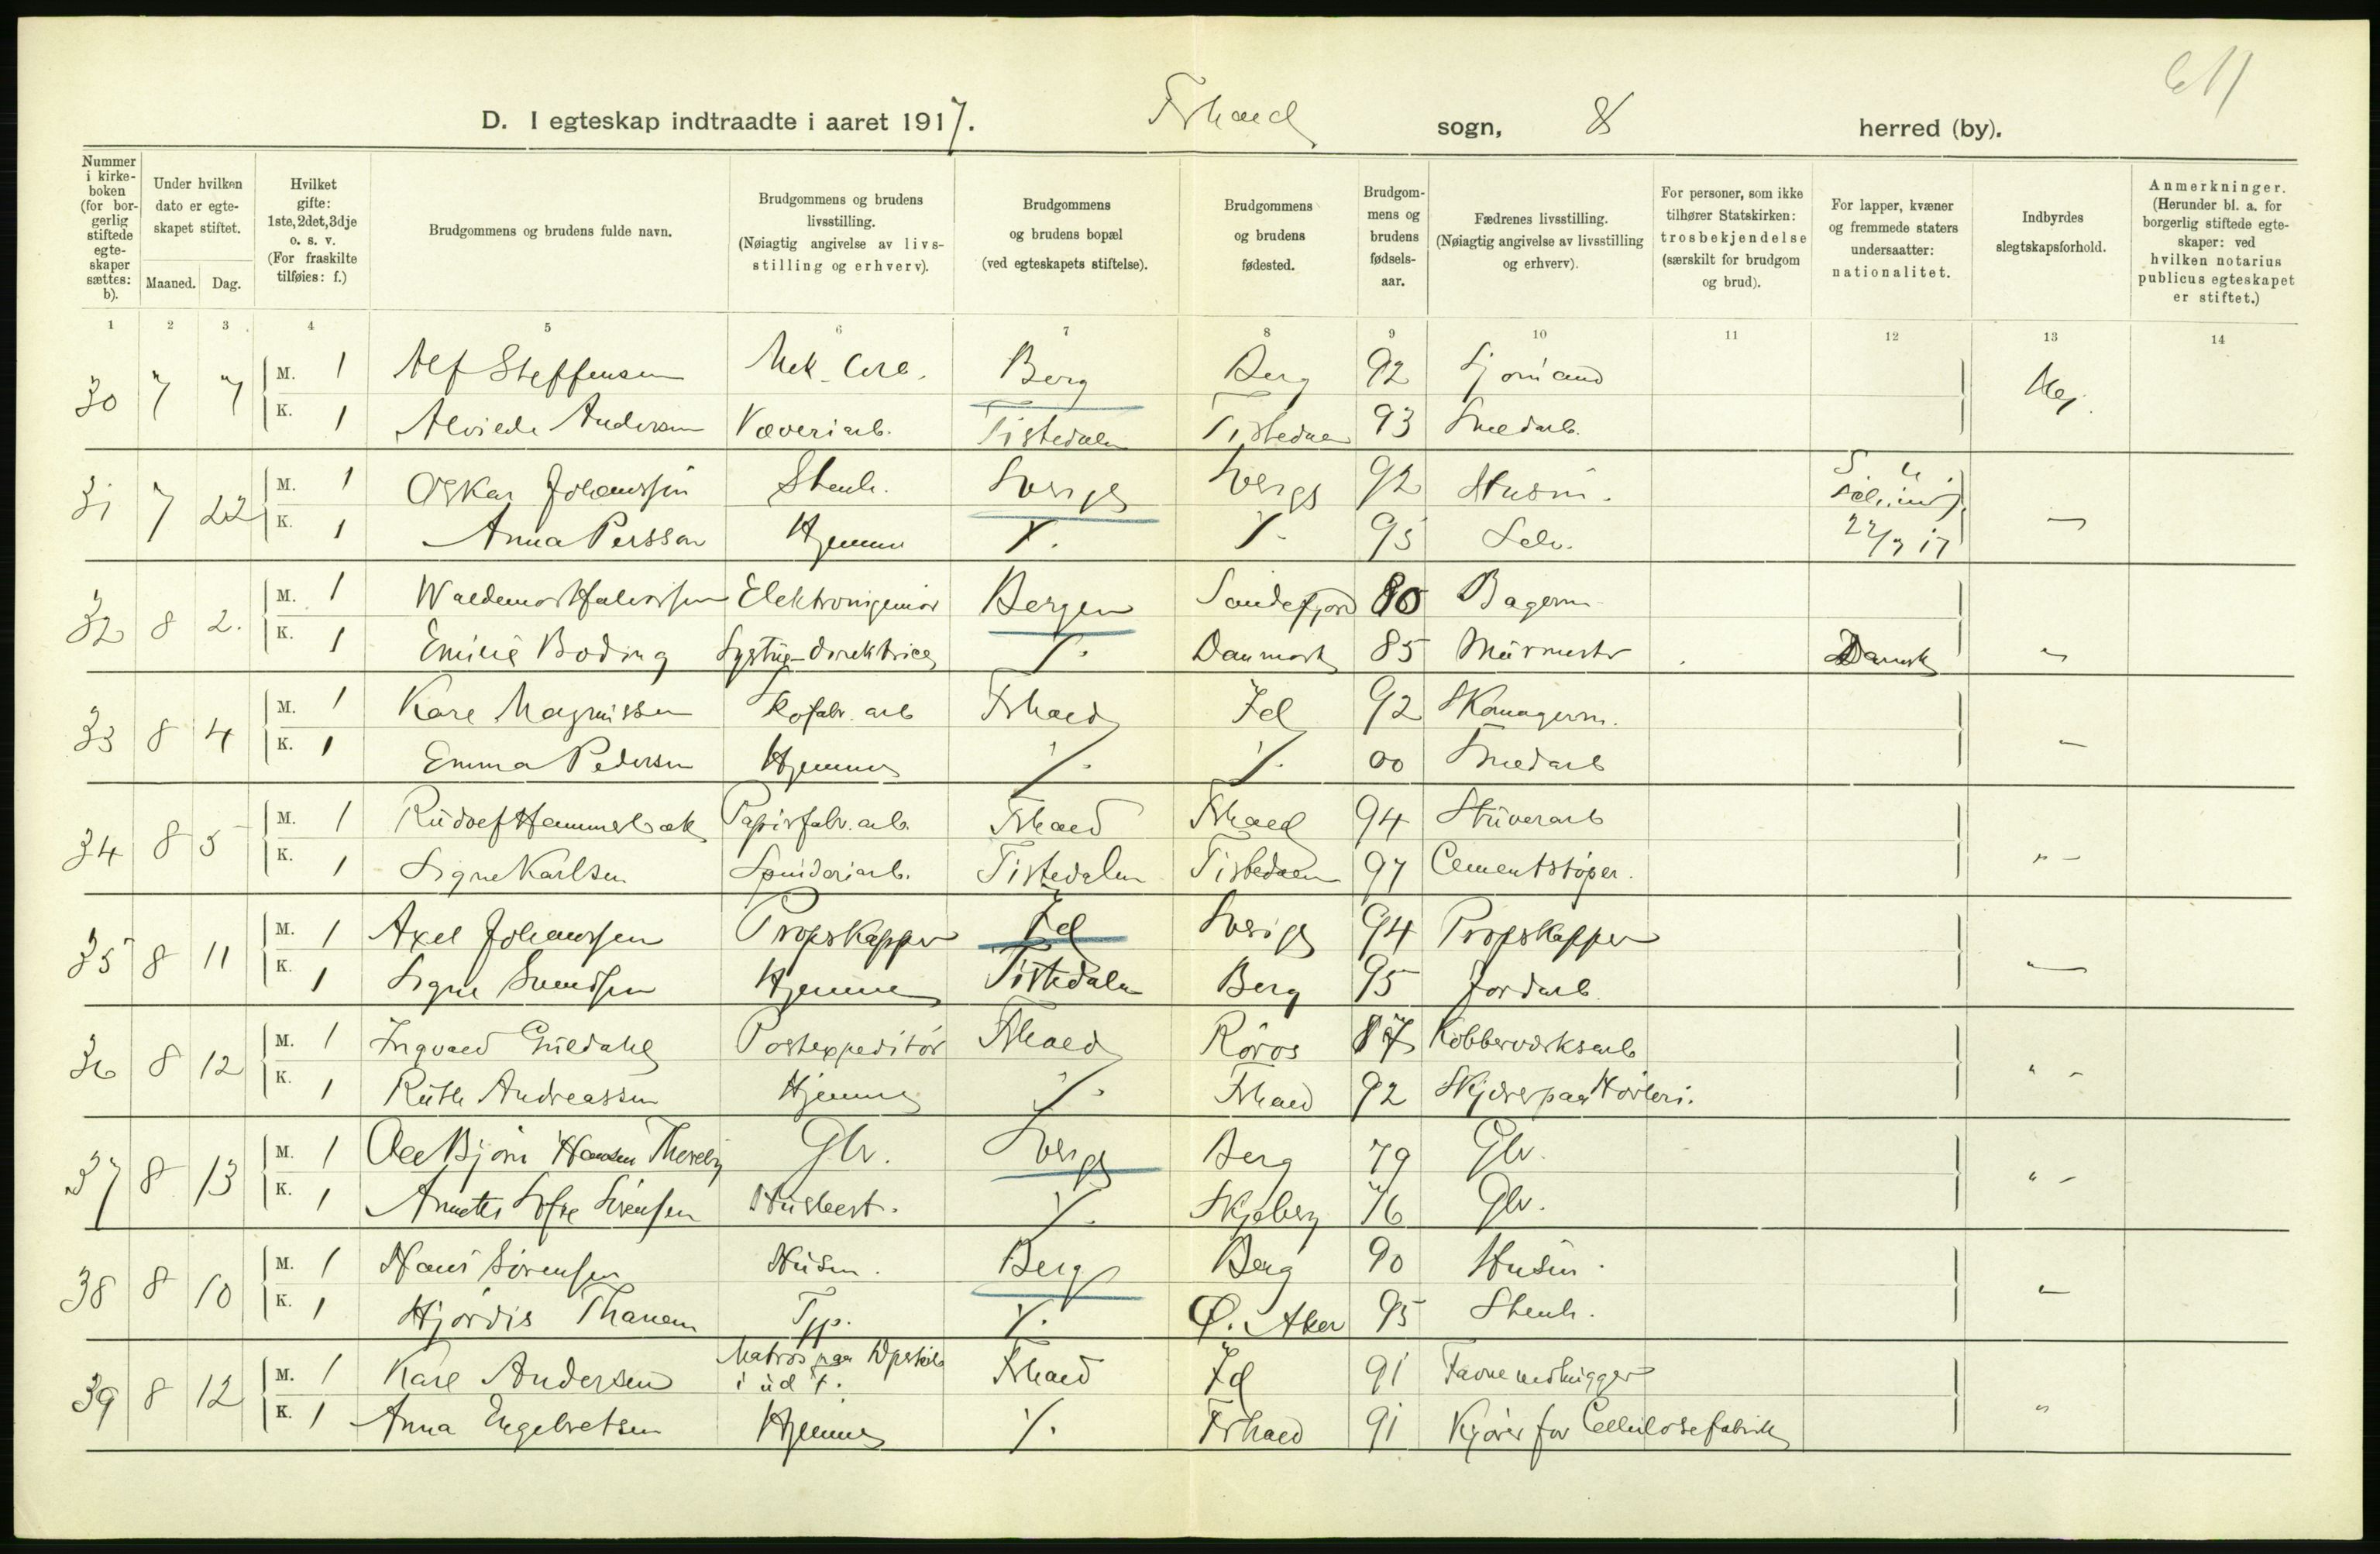 611
D. I egteskap indtraadte i aaret 1917. Frhald sogn, & herred (by).
Nummer i kirke-boken (for bor-gerlig stiftede egte-skaper sættes: b).
Under hvilken dato er egte-skapet stiftet.
Maaned. Dag.
Hvilket gifte: 1ste, 2det, 3dje o. s. v. (For fraskilte tilføies: f.)
Brudgommens og brudens fulde navn.
Brudgommens og brudens livsstilling. (Nøiagtig angivelse av livs-stilling og erhverv).
Brudgommens og brudens bopæl (ved egteskapets stiftelse).
Brudgommens og brudens fødested.
Brudgom-mens og brudens fødsels-aar.
Fædrenes livsstilling. (Nøiagtig angivelse av livsstilling og erhverv).
For personer, som ikke tilhører Statskirken: trosbekjendelse (særskilt for brudgom og brud).
For lapper, kvæner og fremmede staters undersaatter: nationalitet.
Indbyrdes slegtskapsforhold.
Anmerkninger. (Herunder bl. a. for borgerlig stiftede egte-skaper: ved hvilken notarius publicus egteskapet er stiftet.)
1 2 3 4 5 6 7 8 9 10 11 12 13 14
30 7 7 M. 1 Alf Steffensen Mek. arb. Berg Berg 92 Sjömand Nei.
K. 1 Alvilde Andersen Væveriarb. Tistedalen Tistedalen 93 Smedarb.
31 7 22 M. 1 Oskar Johanssen Stenh. Sverige Sverige 92 Husm. —
K. 1 Anna Persson Hjemme ⁒ ⁒ 95 Selv. 22/7 17
32 8 2. M. 1 Waldemar Halvorsen Elektroingeniør Bergen Sandefjord 80 Bagerm. "
K. 1 Emilie Boding Systue-direktrice ⁒ Danmark 85 Murmester Dansk
33 8 4 M. 1 Karl Magnussen Skofabr. arb Frhald Id 92 Skomagerm. —
K. 1 Emma Pedersen Hjemme ⁒ ⁒ 00 Smedarb
34 8 5 M. 1 Rudolf Hammerbæk Papirfabr. arb. Frhald Frhald 94 Stuverarb " —
K. 1 Signe Karlsen Spinderiarb. Tistedalen Tistedalen 97 Cementstøper.
35 8 11 M. 1 Axel Johanssen Propskapper Id Sverige 94 Propskapper "—
K. 1 Signe Svendsen Hjemme Tistedalen Berg 95 Jordarb.
36 8 12 M. 1 Ingvald Guldahl Postexpeditör Frhald Röros 87 Kobberværksarb " -
K. 1 Ruth Andreassen Hjemme ⁒ Frhald 92 Skjærer paa Høvleri.
37 8 13 M. 1 Ole Björn Hansen Gbr. Sverige Berg 79 Gbr. " -
K. 1 Anette Sofie Svensen Husbest. ⁒ Skjeberg 76 Gbr.
38 8 10 M. 1 Hans Sörensen Husm. Berg Berg 90 Husm. "
K. 1 Hjördis Thanem Typ. ⁒ Ø. Aker 95 Stenh.
39 8 12 M. 1 Karl Andersen Matros paa Dpskib i ud. f. Frhald Id 91 Favnevedhugger "
K. 1 Anna Engebretsen Hjemme ⁒ Frhald 91 Kjörer for Cellulosefabrik